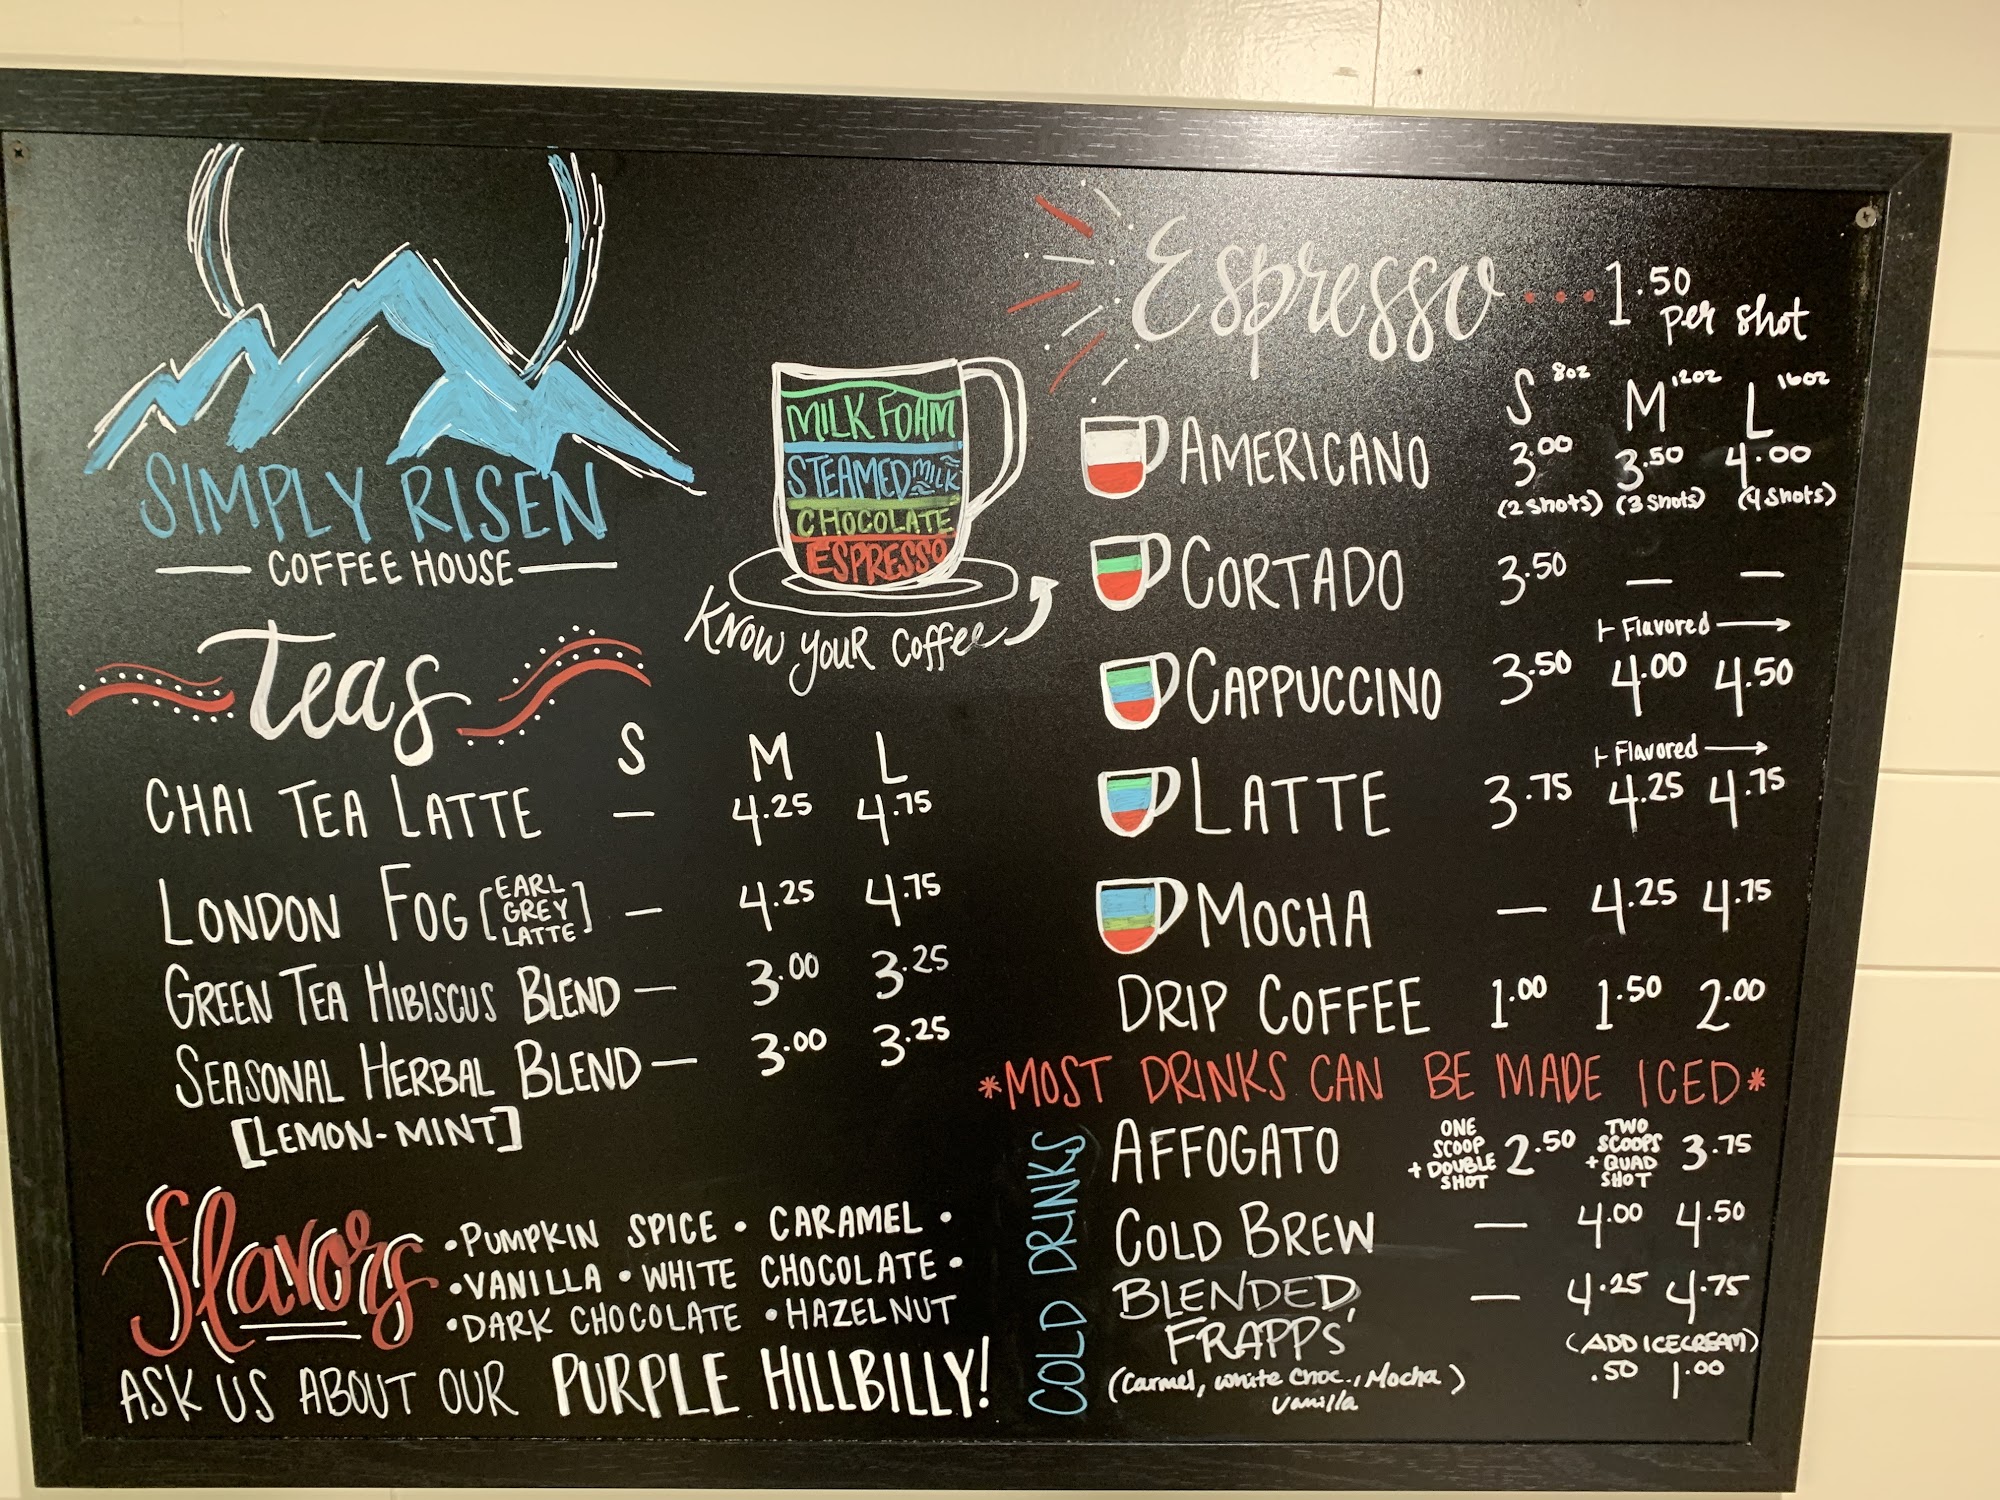 SIMPLY RISEN
COFFEE HOUSE
Teas
S M L
CHAI TEA LATTE — 4.25 4.75
LONDON FOG [EARL GREY LATTE] — 4.25 4.75
GREEN TEA HIBISCUS BLEND — 3.00 3.25
SEASONAL HERBAL BLEND — 3.00 3.25
[LEMON-MINT]
Flavors
•PUMPKIN SPICE • CARAMEL •
•VANILLA • WHITE CHOCOLATE •
•DARK CHOCOLATE • HAZELNUT
ASK US ABOUT OUR PURPLE HILLBILLY!
MILK FOAM
STEAMED MILK
CHOCOLATE
ESPRESSO
KNOW YOUR Coffee
Espresso ... 1.50
per shot
S 8oz M 12oz L 16oz
AMERICANO 3.00 3.50 4.00
(2 shots) (3 shots) (4 shots)
CORTADO 3.50 — —
Flavored
CAPPUCCINO 3.50 4.00 4.50
Flavored
LATTE 3.75 4.25 4.75
MOCHA — 4.25 4.75
DRIP COFFEE 1.00 1.50 2.00
*MOST DRINKS CAN BE MADE ICED*
COLD DRINKS
AFFOGATO ONE SCOOP + DOUBLE SHOT 2.50 TWO SCOOPS + QUAD SHOT 3.75
COLD BREW — 4.00 4.50
BLENDED, — 4.25 4.75
FRAPPS' (ADD ICECREAM)
.50 1.00
(Carmel, white choc., Mocha)
vanilla